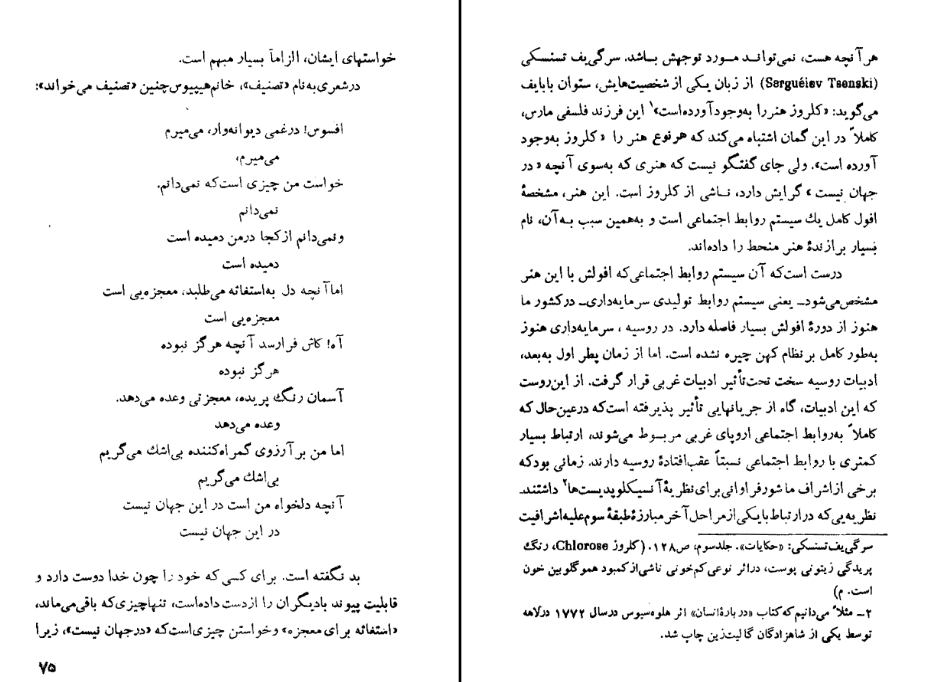 هر آنچه هست، نمی‌تواند مورد توجهش باشد. سرگی‌یف تسنسکی
(Serguéiev Tsenski) از زبان یکی از شخصیت‌هایش، ستوان بابایف
می‌گوید: «کلروز هنر را به‌وجود آورده‌است»۱ این فرزند فلسفی مارس،
کاملاً در این گمان اشتباه می‌کند که هر نوع هنر را «کلروز به‌وجود
آورده است». ولی جای گفتگو نیست که هنری که به‌سوی آنچه «در
جهان نیست» گرایش دارد، ناشی از کلروز است. این هنر، مشخصهٔ
افول کامل یك سیستم روابط اجتماعی است و به‌همین سبب به‌آن، نام
بسیار برازندهٔ هنر منحط را داده‌اند.
درست است‌که آن سیستم روابط اجتماعی‌که افولش با این هنر
مشخص‌می‌شود ــ یعنی سیستم روابط تولیدی سرمایه‌داری ــ در کشور ما
هنوز از دورهٔ افولش بسیار فاصله دارد. در روسیه، سرمایه‌داری هنوز
به‌طور کامل بر نظام کهن چیره نشده است. اما از زمان پطر اول به‌بعد،
ادبیات روسیه سخت تحت‌تأثیر ادبیات غربی قرار گرفت. از این‌روست
که این ادبیات، گاه از جریانهایی تأثیر پذیرفته است‌که درعین‌حال که
کاملاً به‌روابط اجتماعی اروپای غربی مربوط می‌شوند، ارتباط بسیار
کمتری با روابط اجتماعی نسبتاً عقب‌افتادهٔ روسیه دارند. زمانی بودکه
برخی از اشراف ما شور فراوانی برای نظریهٔ آنسیکلوپدیست‌ها۲ داشتند.
نظریه‌یی‌که درارتباط بایکی‌ازمراحل آخر مبارزهٔ طبقهٔ سوم‌علیه‌اشرافیت
سرگی‌یف‌تسنسکی: «حکایات». جلدسوم، ص۱۲۸. (کلروز Chlorose، رنگ
پریدگی زیتونی پوست، دراثر نوعی کم‌خونی ناشی‌ازکمبود هموگلوبین خون
است. م)
۲ــ مثلاً می‌دانیم‌که‌کتاب «دربارهٔ‌انسان» اثر هلوه‌سیوس درسال ۱۷۷۲ درلاهه
توسط یکی از شاهزادگان گالیتزین چاپ شد.
خواستهای ایشان، الزاماً بسیار مبهم است.
در شعری به‌نام «تصنیف»، خانم‌هیپیوس‌چنین «تصنیف می‌خواند»:
افسوس! درغمی دیوانه‌وار، می‌میرم
می‌میرم،
خواست من چیزی است‌که نمی‌دانم،
نمی‌دانم
و نمی‌دانم ازکجا درمن دمیده است
دمیده است
اما آنچه دل به‌استغاثه می‌طلبد، معجزه‌یی است
معجزه‌یی است
آه! کاش فرارسد آنچه هرگز نبوده
هرگز نبوده
آسمان رنگ پریده، معجزتی وعده می‌دهد.
وعده می‌دهد
اما من بر آرزوی گمراه‌کننده بی‌اشك می‌گریم
بی‌اشك می‌گریم
آنچه دلخواه من است در این جهان نیست
در این جهان نیست
بد نگفته است. برای کسی که خود را چون خدا دوست دارد و
قابلیت پیوند بادیگران را ازدست داده‌است، تنهاچیزی‌که باقی‌می‌ماند،
«استغاثه برای معجزه» و خواستن چیزی‌است‌که «درجهان نیست»، زیرا
۷۵